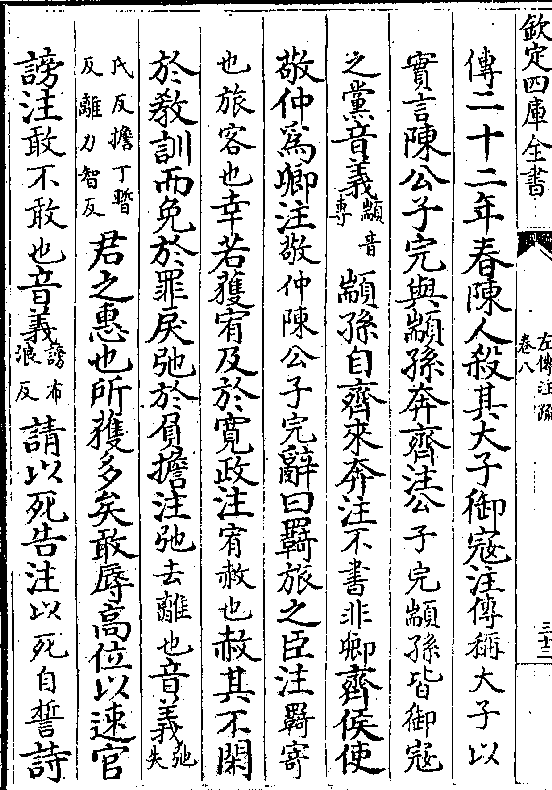 欽定四庫全書
左傳注疏
卷八
三十二
傳二十二年春陳人殺其大子御寇注傳稱大子以
實言陳公子完與顓孫奔齊注公子完顓孫皆御寇
之黨音義顓音
專
顓孫自齊來奔注不書非卿齊侯使
敬仲為卿注敬仲陳公子完辭曰羇旅之臣注羇寄
也旅客也幸若獲宥及於寛政注宥赦也赦其不閑
於敎訓而免於罪戾弛於負擔注弛去離也音義弛
失
氏反擔丁暫
反離力智反
君之惠也所獲多矣敢辱高位以速官
謗注敢不敢也音義謗布
浪反
請以死告注以死自誓詩